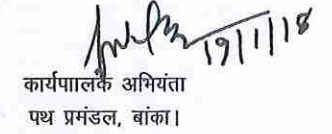 19/1/18
कार्यपाालक अभियंता
पथ प्रमंडल, बांका।